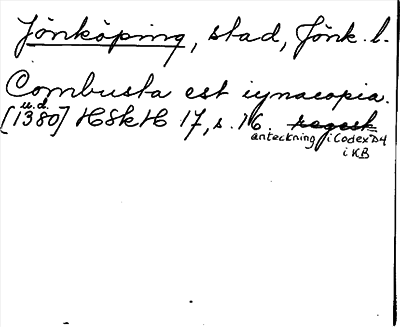 Jönköping, stad, Jönk. l.
Combusta est iynacopia.
u.d.
[1380] HSkH 17, s. 16. regest
anteckning i Codex D4
i KB